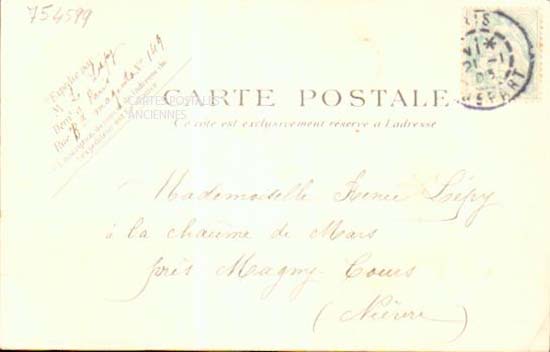 754599
Expédié par
M Lépy
Paris
Bd magenta 149
CARTES POSTALES
ANCIENNES
CARTE POSTALE
Ce côté est exclusivement réservé à l'adresse
Mademoiselle Renée Lépy
à la chaume de Mars
près Magny-Cours
(Nièvre)